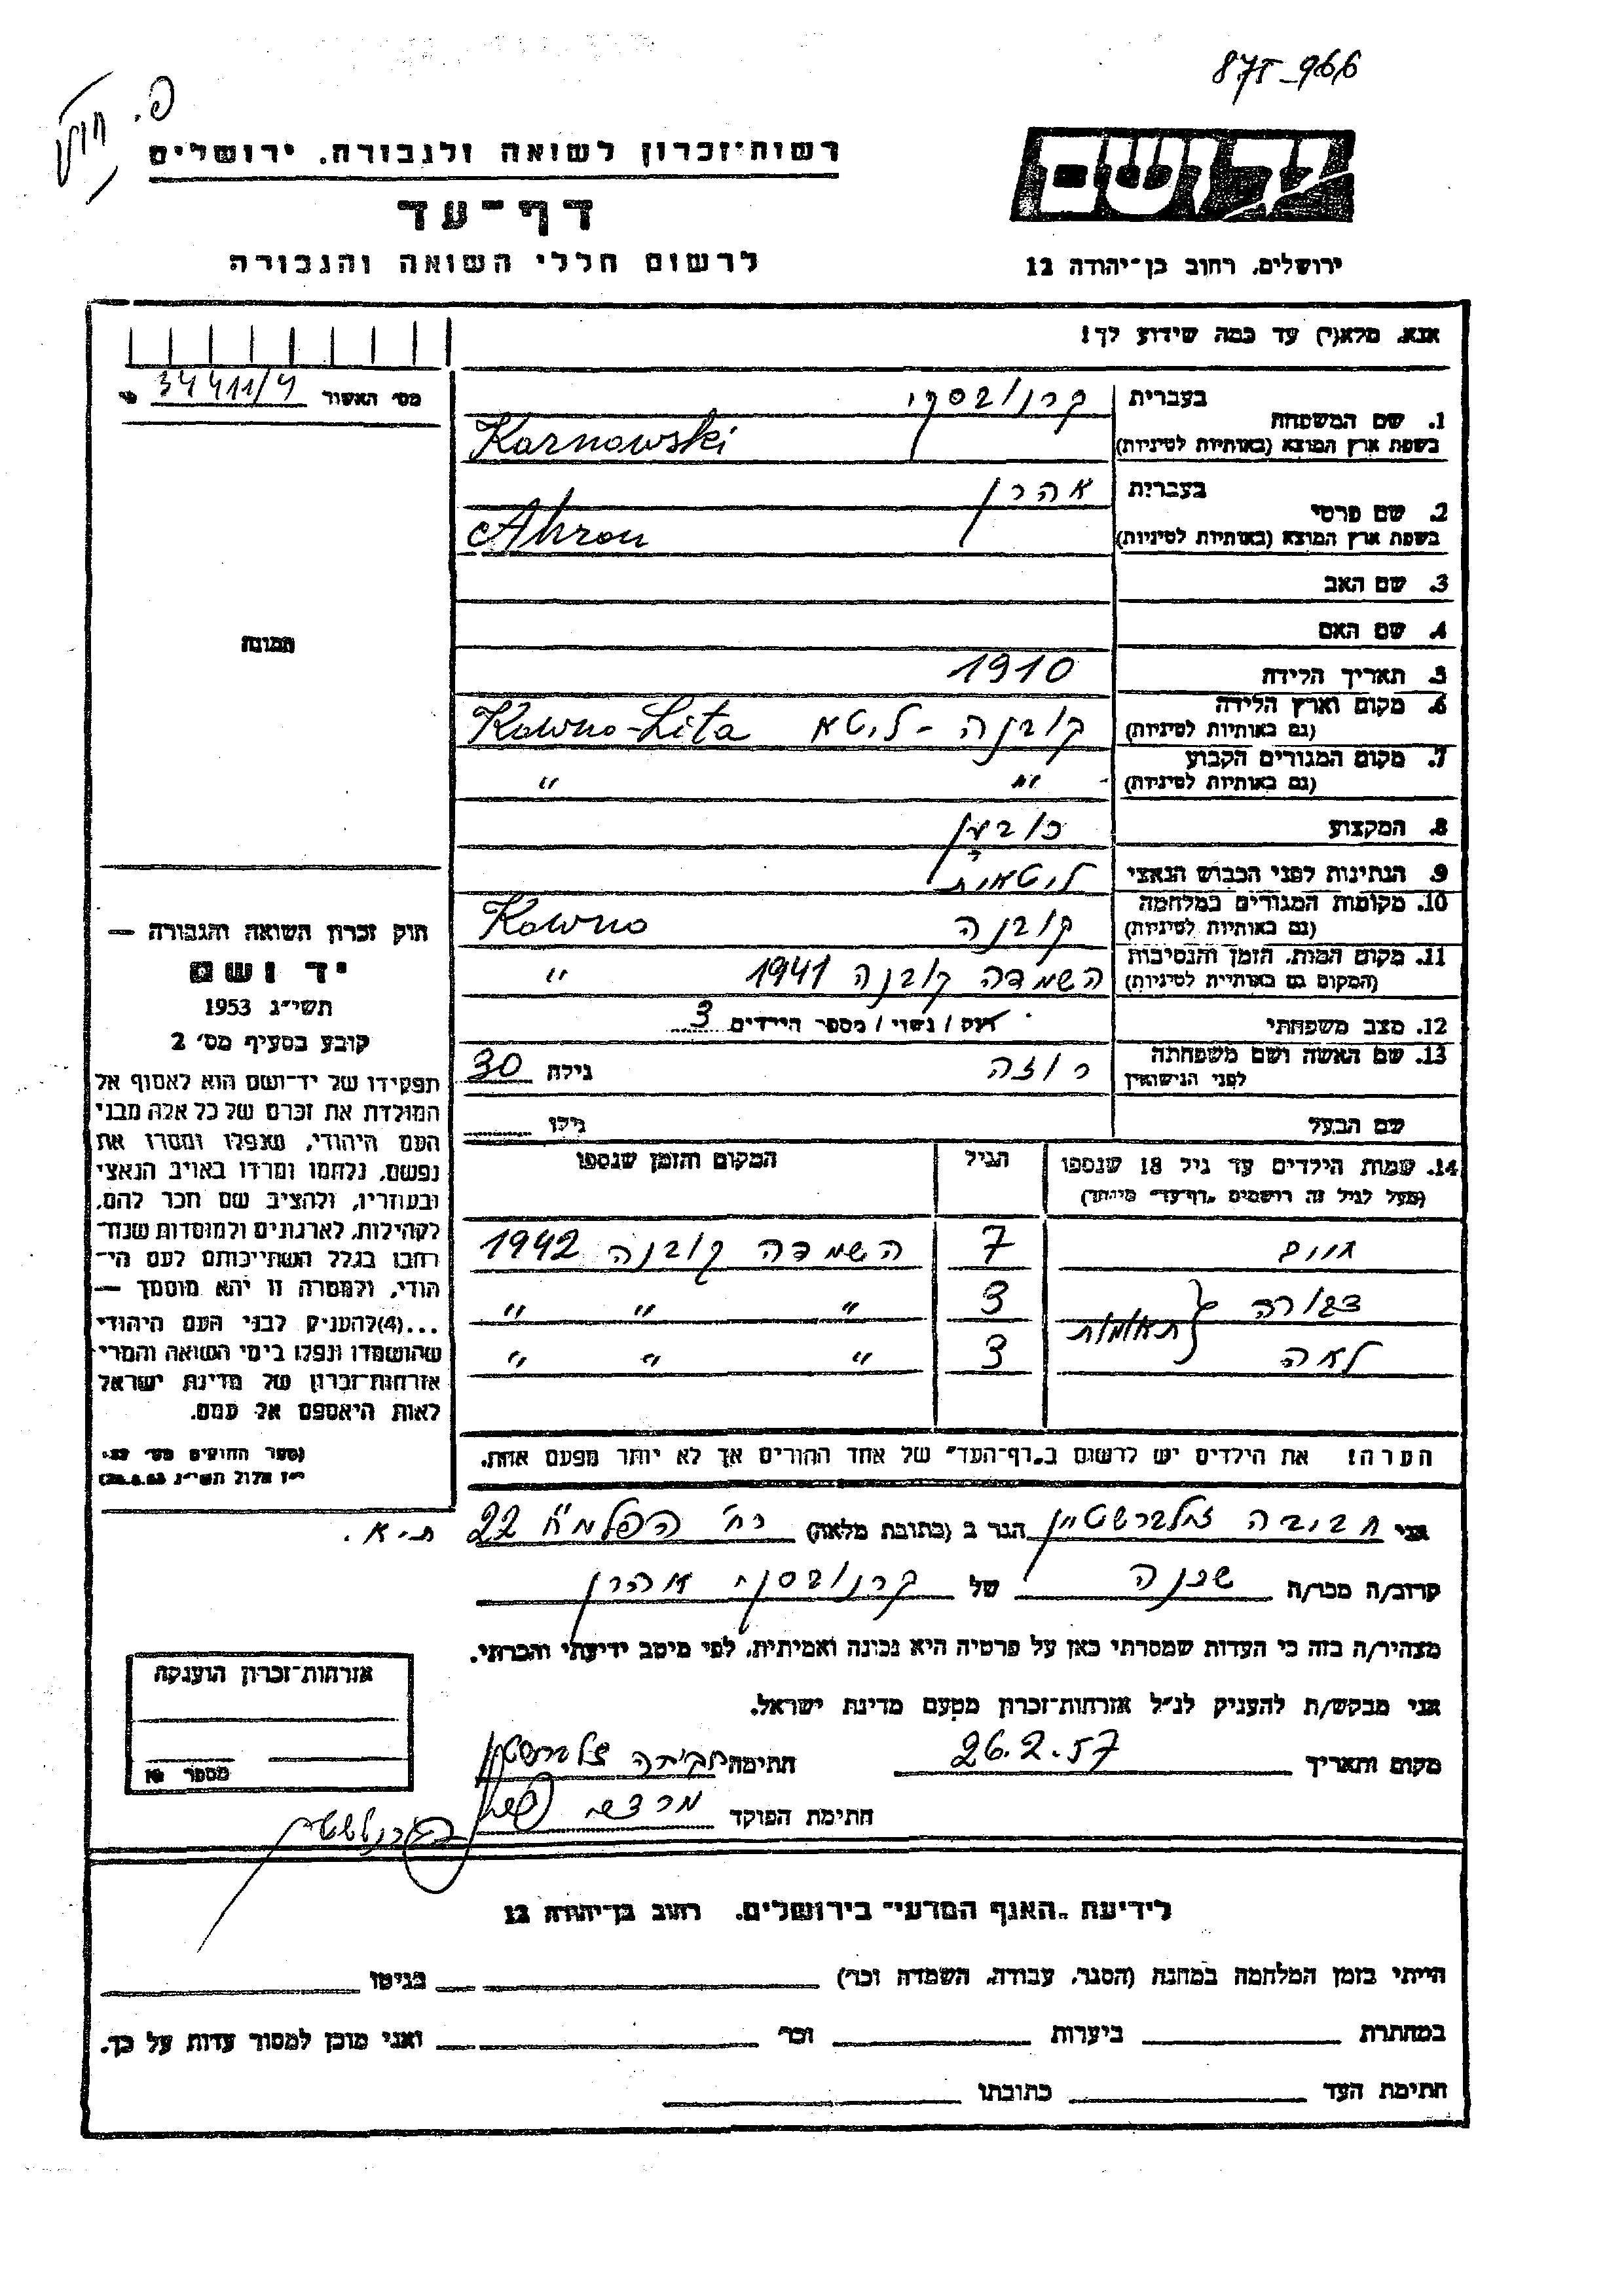 87T-966
יד ושם
רשות־זכרון לשואה ולגבורה. ירושלים
דף־עד
לרשום חללי השואה והגבורה
ירושלים. רחוב בן־יהודה 12
אנא. מלא(י) עד כמה שידוע לך!
מס׳ האשור 34411/4
1. שם המשפחה
בעברית קרנובסקי
בשפת ארץ המוצא (באותיות לטיניות) Karnowski
2. שם פרטי
בעברית אהרן
בשפת ארץ המוצא (באותיות לטיניות) Ahron
3. שם האב
4. שם האם
תמונה
5. תאריך הלידה 1910
6. מקום וארץ הלידה
(גם באותיות לטיניות) קובנה - ליטא Kowno-Lita
7. מקום המגורים הקבוע
(גם באותיות לטיניות) " "
8. המקצוע כובען
9. הנתינות לפני הכבוש הנאצי ליטאית
10. מקומות המגורים במלחמה
(גם באותיות לטיניות) קובנה Kowno
11. מקום המות. הזמן והנסיבות
(המקום גם באותיות לטיניות) השמדה קובנה 1941 "
12. מצב משפחתי רוק / נשוי / מספר הילדים 3
13. שם האשה ושם משפחתה
לפני הנישואין רוזה גילה 30
שם הבעל גילו
14. שמות הילדים עד גיל 18 שנספו
(מעל לגיל זה רושמים „דף־עד" מיוחד)
הגיל
המקום והזמן שנספו
חיים 7 השמדה קובנה 1942
דבורה 3 " " "
תאומות
לאה 3 " " "
הערה! את הילדים יש לרשום ב„דף־העד" של אחד ההורים אך לא יותר מפעם אחת.
חוק זכרון השואה והגבורה —
יד ושם
תשי״ג 1953
קובע בסעיף מס׳ 2
תפקידו של יד־ושם הוא לאסוף אל
המולדת את זכרם של כל אלה מבני
העם היהודי, שנפלו ומסרו את
נפשם, נלחמו ומרדו באויב הנאצי
ובעוזריו, ולהציב שם וזכר להם,
לקהילות, לארגונים ולמוסדות שנח־
רבו בגלל השתייכותם לעם הי־
הודי, ולמטרה זו יהא מוסמך —
...(4)להעניק לבני העם היהודי
שהושמדו ונפלו בימי השואה והמרי
אזרחות־זכרון של מדינת ישראל
לאות היאספם אל עמם.
(ספר החוקים מס׳ 132.
י״ז אלול תשי״ג 28.8.53)
אני חביבה זילברשטיין הגר ב (כתובת מלאה) רח׳ הפלמ״ח 22 ת.א.
קרוב/ה מכר/ה שכנה של קרנובסקי אהרן
מצהיר/ה בזה כי העדות שמסרתי כאן על פרטיה היא נכונה ואמיתית, לפי מיטב ידיעתי והכרתי.
אני מבקש/ת להעניק לנ״ל אזרחות־זכרון מטעם מדינת ישראל.
מקום ותאריך 26.2.57 חתימה חביבה זילברשטיין
חתימת הפוקד מרדכי
אזרחות־זכרון הוענקה
מספר
לידיעת „האגף המדעי" בירושלים. רחוב בן־יהודה 12
הייתי בזמן המלחמה במחנה (הסגר, עבודה, השמדה וכו׳) בגיטו
במחתרת ביערות וכו׳ ואני מוכן למסור עדות על כך.
חתימת העד כתובתו